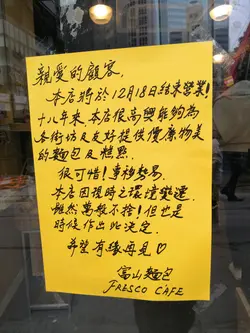 親愛的顧客,
本店將於12月18日結束營業!
十八年來本店很高興能夠為
各街坊及友好提供價廉物美
的麵包及糕點.
很可惜!事移勢易.
本店因現時之環境變遷.
雖然萬般不捨!但也是
時候作出此決定.
希望有緣再見♡
富山麵包
FRESCO CAFE